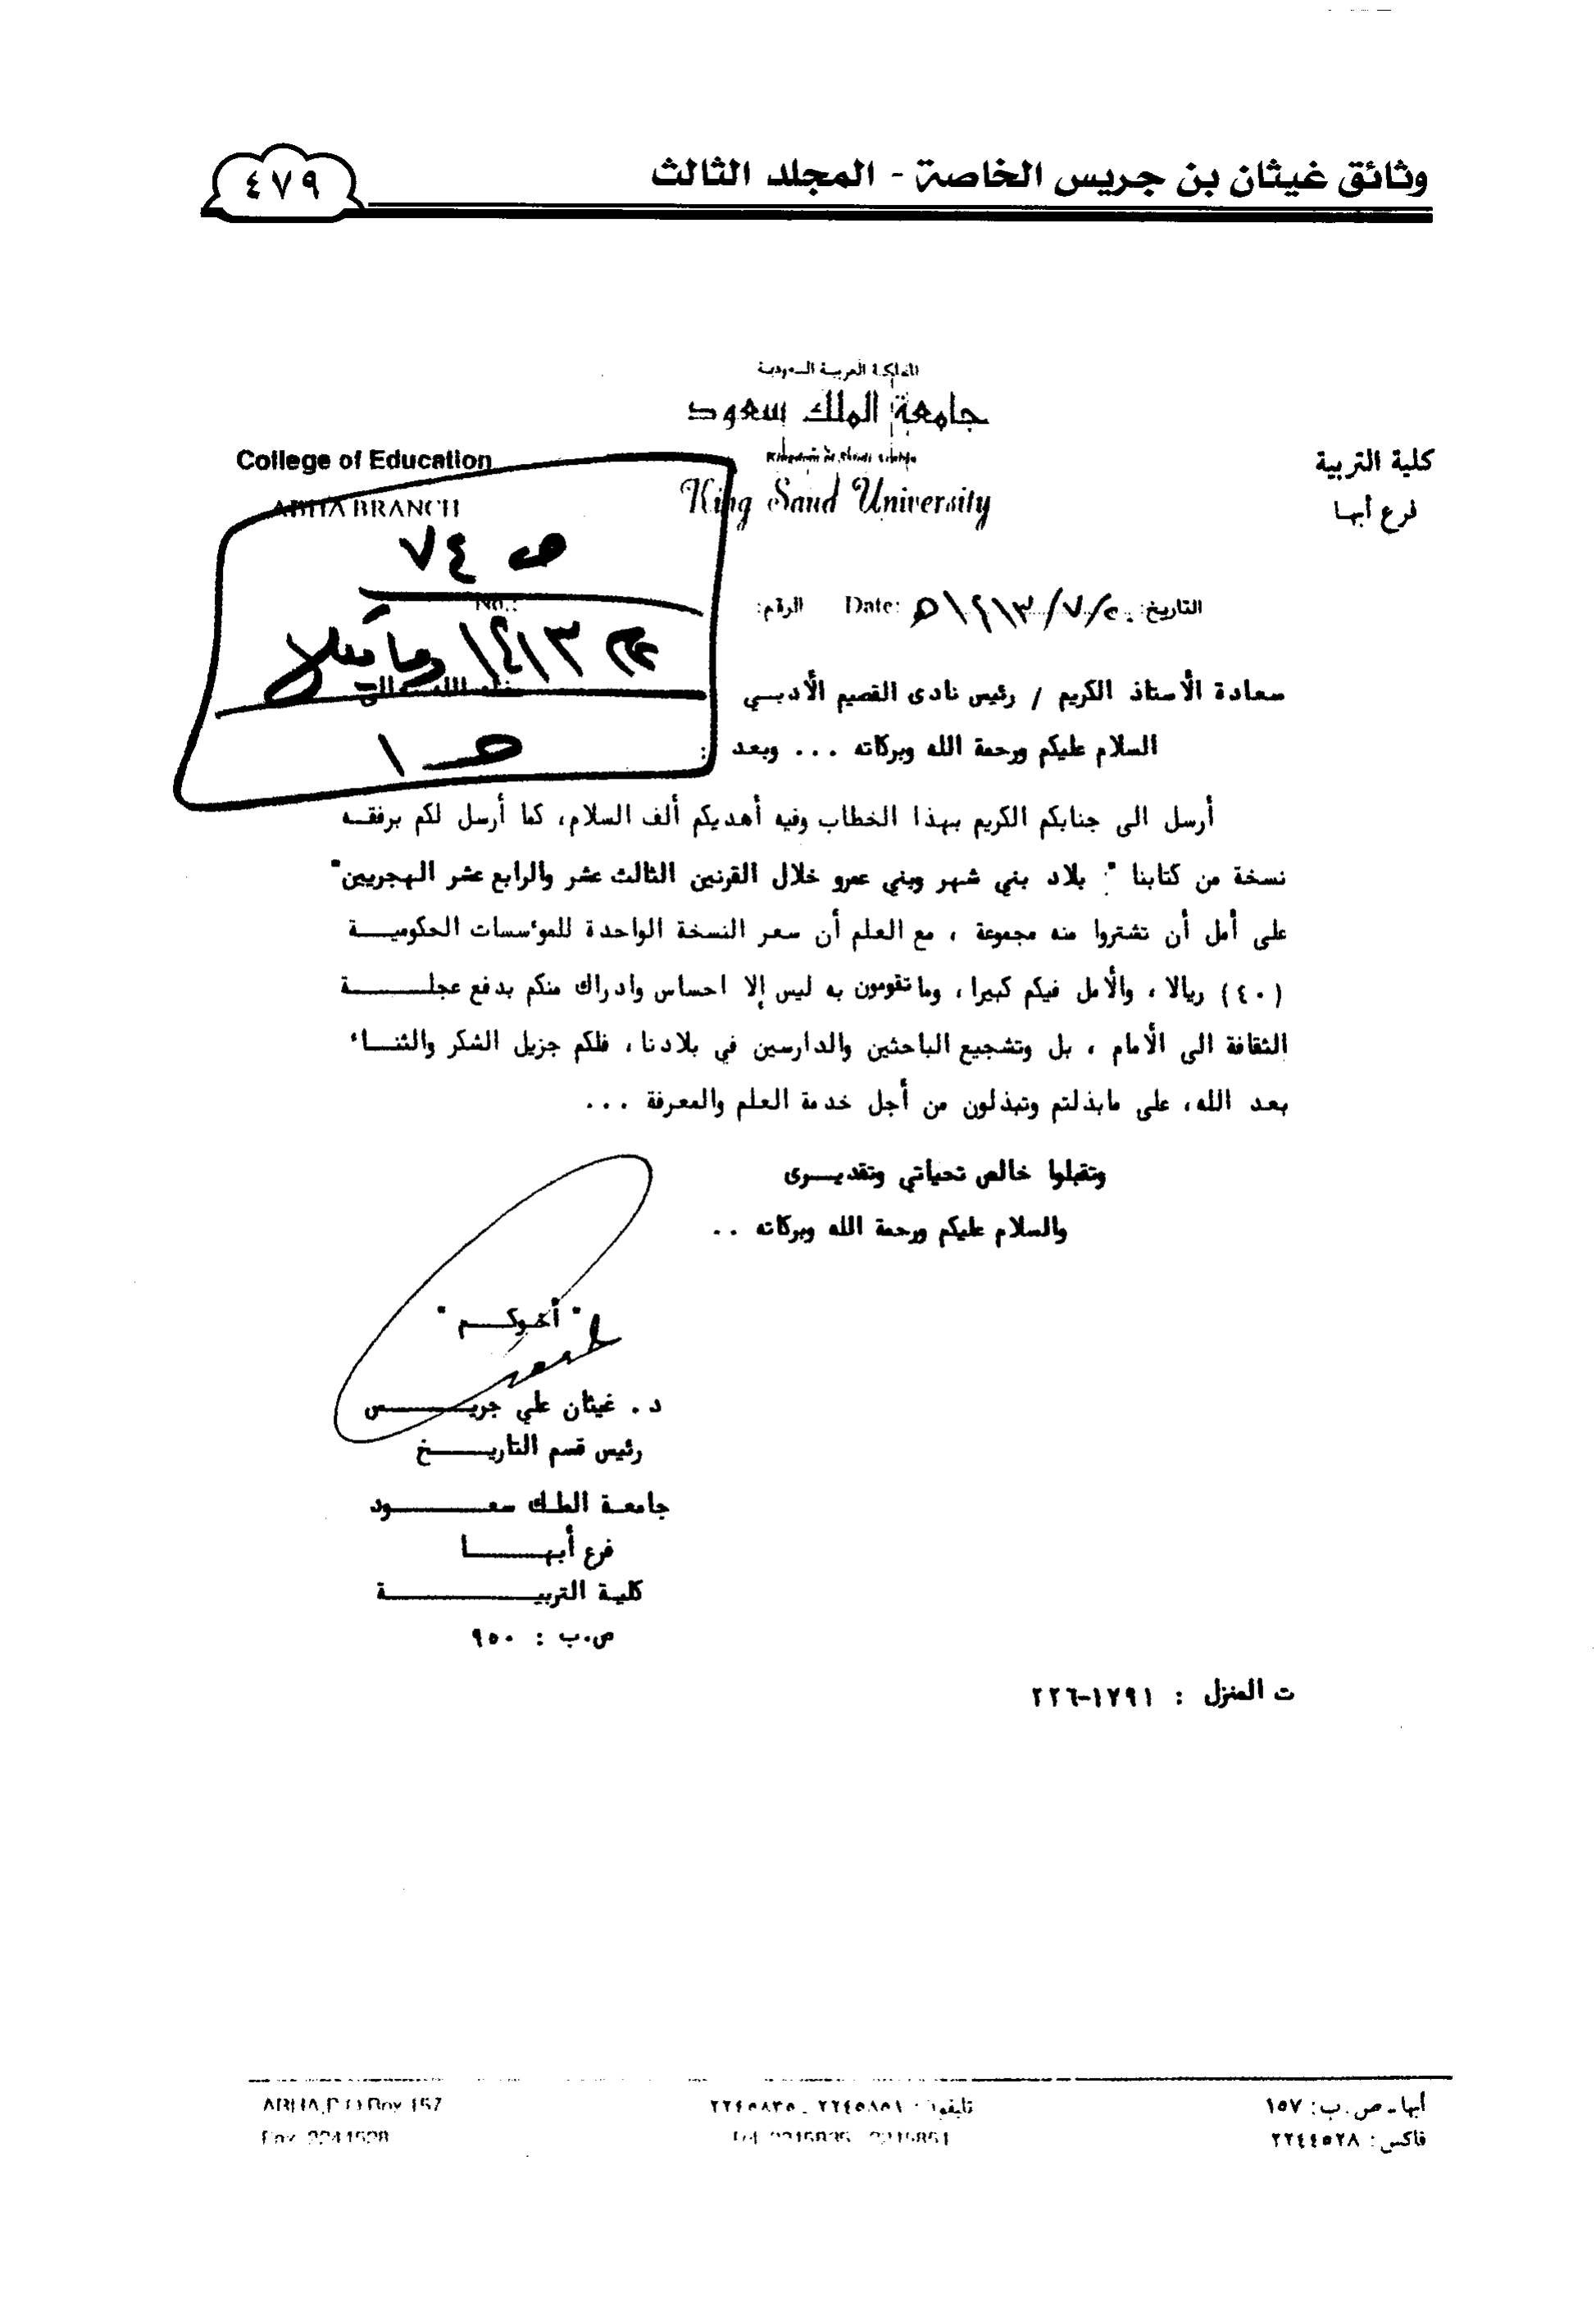 وثائق غيثان بن جريس الخاصة - المجلد الثالث
٤٧٩
المملكة العربية السعودية
جامعة الملك سعود
King Saud University
كلية التربية
فرع أبها
College of Education
ABHA BRANCH
ص ٧٤
No.:
١٤١٣
ص ١
التاريخ: ٢٠/٧/١٤١٣هـ Date: الرقم:
سعادة الأستاذ الكريم / رئيس نادى القصيم الأدبــي
السلام عليكم ورحمة الله وبركاته ... وبعد :
أرسل الى جنابكم الكريم بهذا الخطاب وفيه أهديكم ألف السلام، كما أرسل لكم برفقــه
نسخة من كتابنا : " بلاد بني شهر وبني عمرو خلال القرنين الثالث عشر والرابع عشر الهجريين"
على أمل أن تشتروا منه مجموعة ، مع العلم أن سعر النسخة الواحدة للموءسسات الحكوميــــة
(٤٠) ريالا ، والأمل فيكم كبيرا ، وماتقومون به ليس إلا احساس وادراك منكم بدفع عجلـــــة
الثقافة الى الأمام ، بل وتشجيع الباحثين والدارسين في بلادنا ، فلكم جزيل الشكر والثنــاء
بعد الله، على مابذلتم وتبذلون من أجل خدمة العلم والمعرفة ...
وتقبلوا خالص تحياتي وتقديــرى
والسلام عليكم ورحمة الله وبركاته ..
" أخوكــم "
د . غيثان علي جريـــــس
رئيس قسم التاريــــخ
جامعة الملك سعـــــود
فرع أبهـــــا
كلية التربيـــــــة
ص.ب : ٩٥٠
ت المنزل : ١٧٩١-٢٢٦
أبها ـ ص. ب: ١٥٧
فاكس: ٢٢٤٤٥٢٨
تليفون: ٢٢٤٥٨٥١ ـ ٢٢٤٥٨٣٥
ABHA, P.O.Box 157